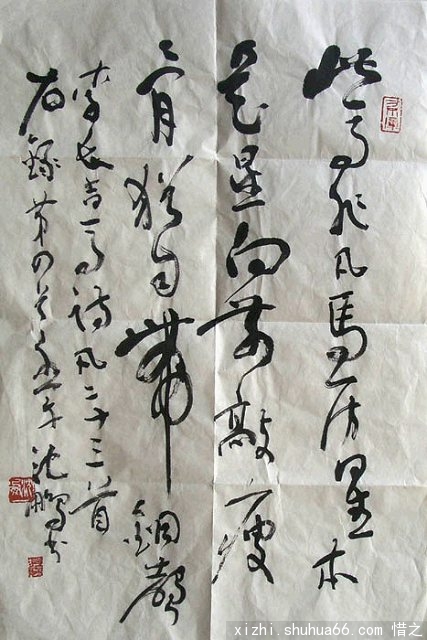 此马非凡馬房星本
是星向前敲瘦
骨猶自带銅聲
李长吉马诗凡二十三首
右錄第四首 年沈鵬书
xizhi.shuhua66.com 惜之